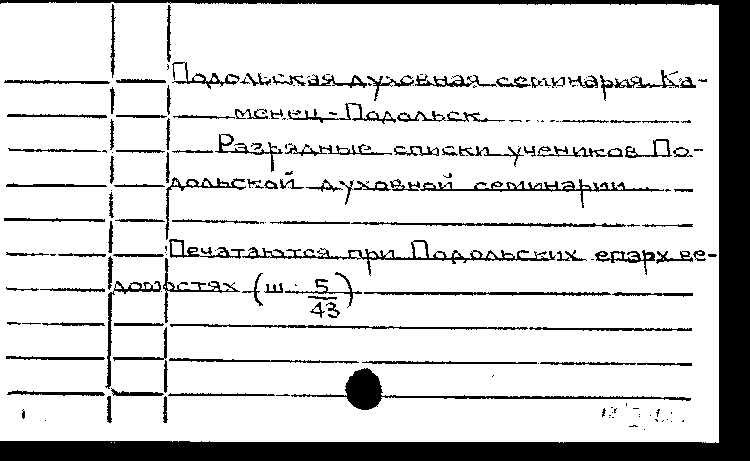 Подольская духовная семинария. Ка-
менец-Подольск.
Разрядные списки учеников По-
дольской духовной семинарии
Печатаются при Подольских епарх. ве-
домостях (ш. 5/43)